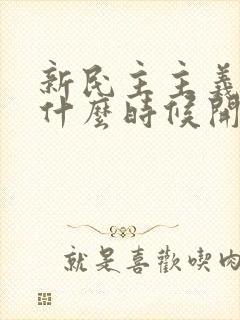 新民主主義
什麼時候開
就是喜歡喫肉